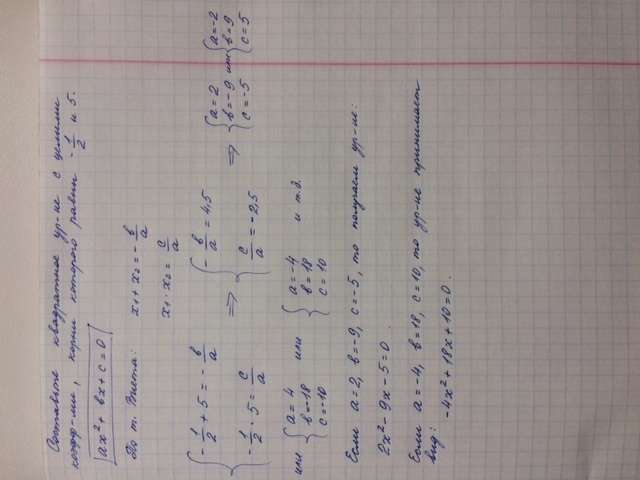 Составьте квадратное ур-ие с целыми
коэф-ми, корни которого равны -1/2 и 5.
ax² + bx + c = 0
По т. Виета: x₁ + x₂ = -b/a
x₁ · x₂ = c/a
{ -1/2 + 5 = -b/a ⇒ { -b/a = 4,5 ⇒ { a = 2 или { a = -2
b = -9 b = 9
{ -1/2 · 5 = c/a { c/a = -2,5 c = -5 c = 5
или { a = 4 или { a = -4 и т.д.
b = -18 b = 18
c = -10 c = 10
Если a = 2, b = -9, c = -5, то получаем ур-ие:
2x² - 9x - 5 = 0.
Если a = -4, b = 18, c = 10, то ур-ие принимает
вид: -4x² + 18x + 10 = 0.